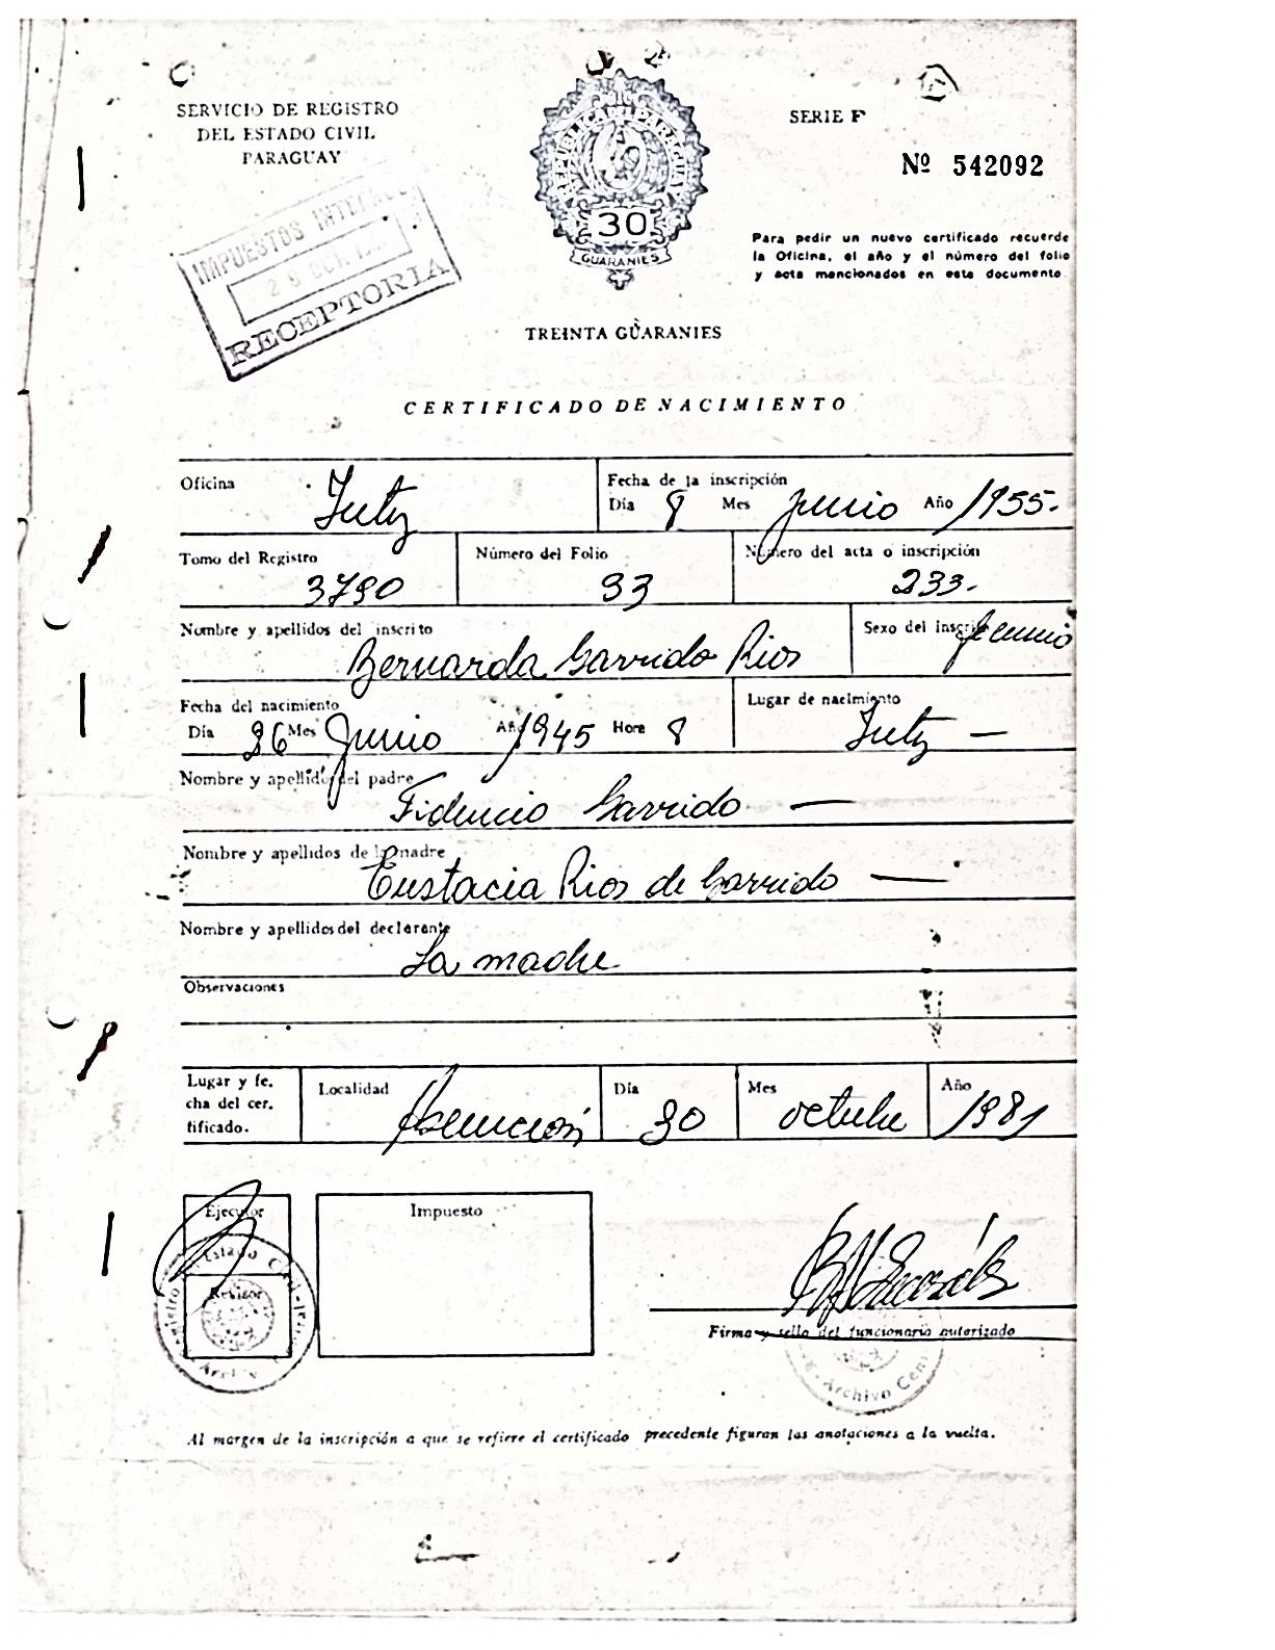 SERVICIO DE REGISTRO
DEL ESTADO CIVIL
PARAGUAY
REPUBLICA DEL PARAGUAY
30
GUARANIES
SERIE F
Nº 542092
Para pedir un nuevo certificado recuerde
la Oficina, el año y el número del folio
y acta mencionados en este documento.
IMPUESTOS INTERNOS
RECEPTORIA
TREINTA GUARANIES
CERTIFICADO DE NACIMIENTO
Oficina Yuty
Fecha de la inscripción
Día 8 Mes junio Año 1955.
Tomo del Registro 3790
Número del Folio 33
Número del acta o inscripción 233.
Nombre y apellidos del inscrito Bernarda Garrido Rios
Sexo del inscrito
Fecha del nacimiento
Día 26 Mes Junio Año 1945 Hora 8
Lugar de nacimiento Yuty —
Nombre y apellidos del padre Fidencio Garrido —
Nombre y apellidos de la madre Eustacia Rios de Garrido —
Nombre y apellidos del declarante La madre
Observaciones
Lugar y fe.
cha del cer.
tificado.
Localidad Asunción
Día 30
Mes octubre
Año 1981
Ejecutor
Revisor
Impuesto
Firma y sello del funcionario autorizado
Al margen de la inscripción a que se refiere el certificado precedente figuran las anotaciones a la vuelta.